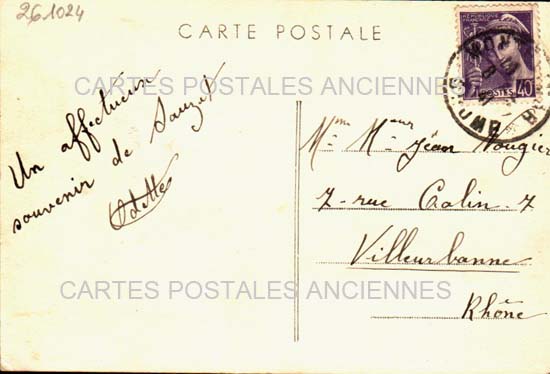 261024
CARTE POSTALE
RÉPUBLIQUE FRANÇAISE
POSTES 40
CARTES POSTALES ANCIENNES
Un affectueux
souvenir de Sauzet
Odette
Mme Mneur Jean Vougier
7 - rue Colin - 7
Villeurbanne
CARTES POSTALES ANCIENNES
Rhône